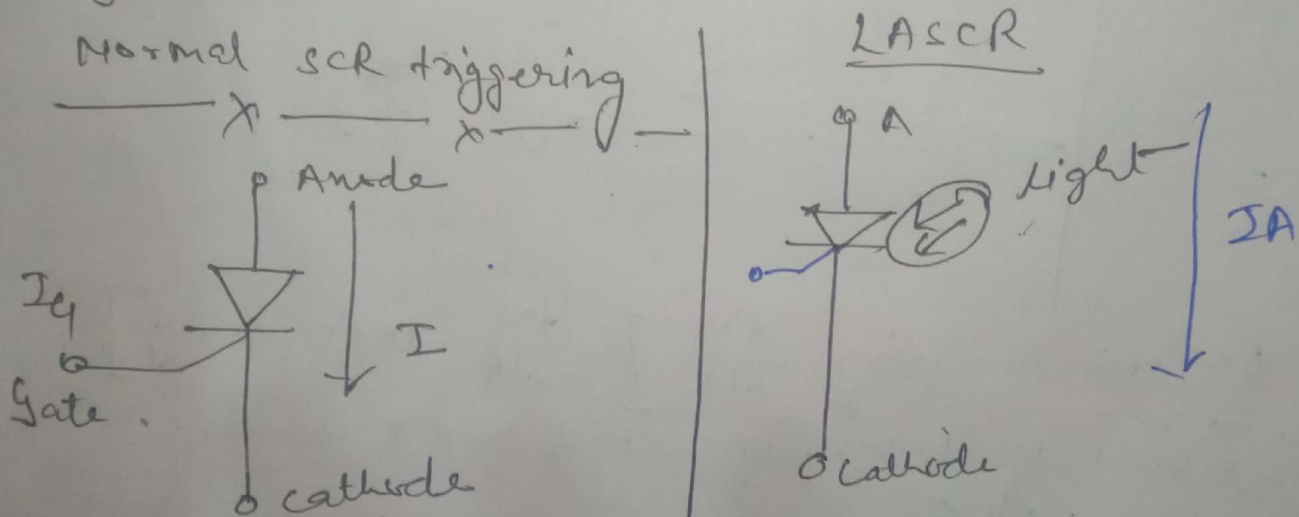 Normal SCR triggering
Anode
IG
Gate.
I
Cathode
LASCR
A
Light
IA
Cathode